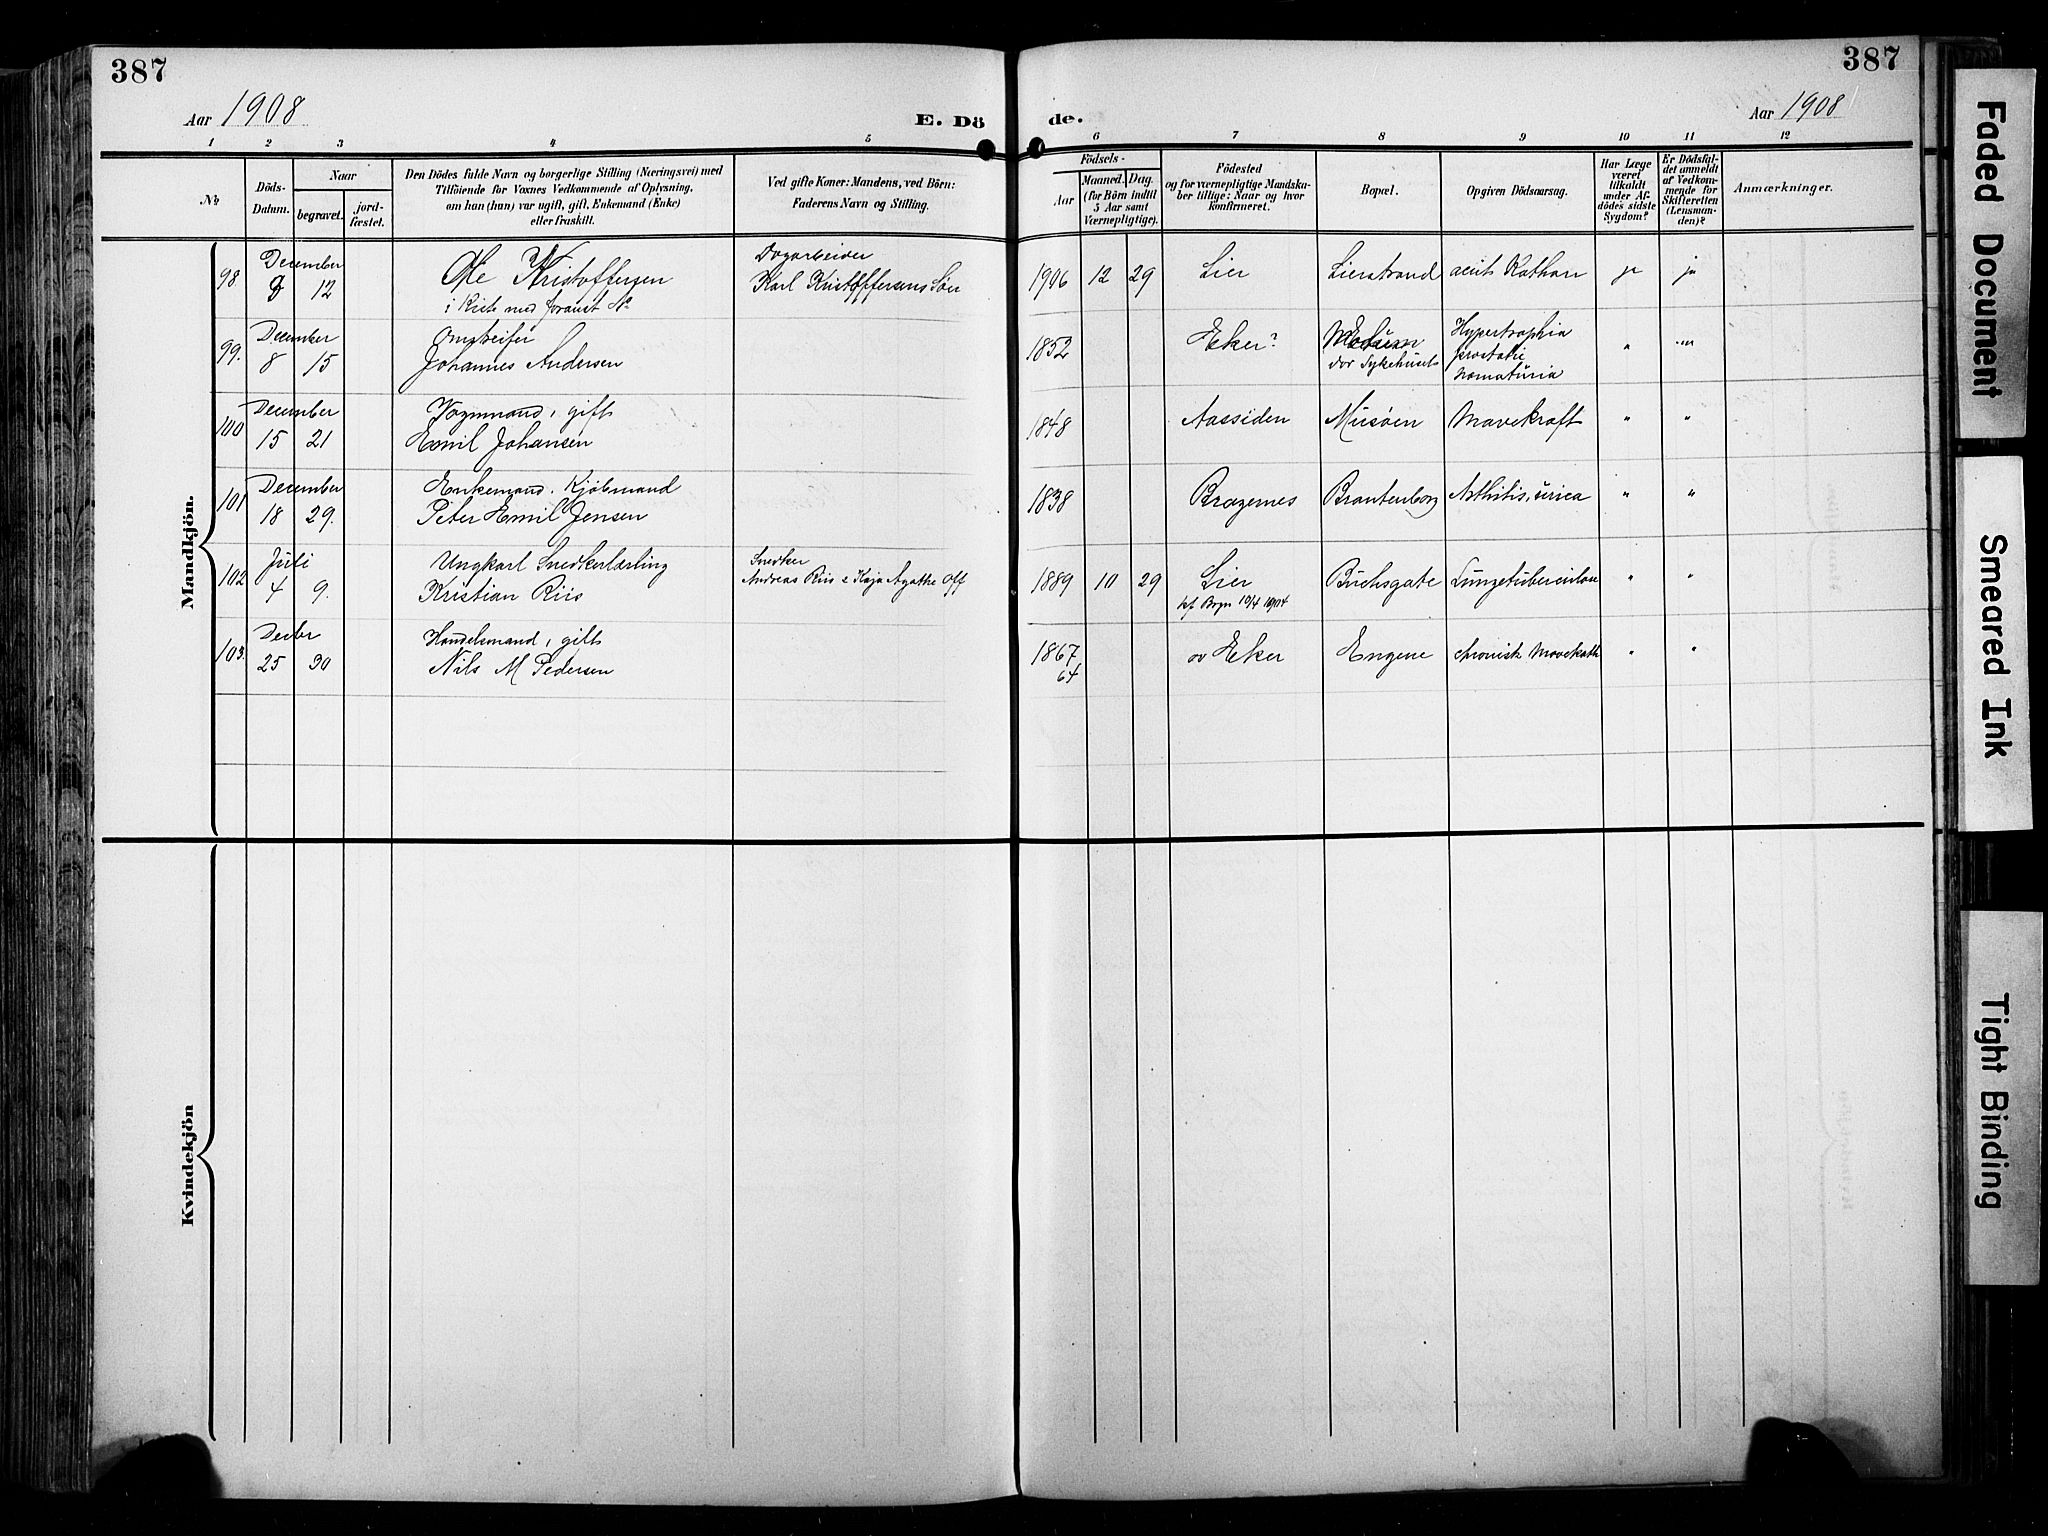 387
387
Aar 1908
E. Dö
de.
Aar 1908
1 2 3 4 5 6 7 8 9 10 11 12
No
Döds-
Datum.
Naar
begravet.
jord-
fæstet.
Den Dödes fulde Navn og borgerlige Stilling (Næringsvei) med
Tilföiende for Voxnes Vedkommende af Oplysning,
om han (hun) var ugift, gift, Enkemand (Enke)
eller fraskilt.
Ved gifte Koner: Mandens, ved Börn:
Faderens Navn og Stilling.
Födsels-
Aar
Maaned.
Dag.
(for Börn indtil
5 Aar samt
Værnepligtige).
Födested
og for værnepligtige Mandska-
ber tillige: Naar og hvor
konfirmeret.
Bopæl.
Opgiven Dödsaarsag.
Har Læge
været
tilkaldt
under Af-
dödes sidste
Sygdom?
Er Dödsfal-
det anmeldt
af Vedkom-
mende for
Skifteretten
(Lensman-
den)?
Anmærkninger.
Mandkjön.
98. December 12
Ole Kristoffersen
i Kiste med
Dagarbeider
Karl Kristoffersens Søn
1906 12 29 Lier Lierstrand acut Katharr ja ja
99. December 8 15
Omstreifer
Johannes Andersen
1852 Eker? Sykehuset
Hypertrophia
prostatie
hæmaturia
" "
100 December 15 21
Vognmand, gift
Emil Johansen
1848 Aassiden Musøen Mavekræft " "
101 December 18 29.
Enkemand, Kjöbmand
Peter Emil Jensen
1838 Bragernes Brantenborg Arthitis urica " "
102 Juli 4 9.
Ungkarl Snedkerlærling
Kristian Riis
Snedker
Andreas Riis & Kaja Agathe Off
1889 10 29 Lier
Bragn 10/4 1904
Buchsgate Lungetuberculose " "
103. Decbr 25 30
Handelsmand, gift
Nils M Pedersen
1867
64
ov Eker Engene chronisk Mavekath " "
Kvindekjön
Faded Document
Smeared Ink
Tight Binding